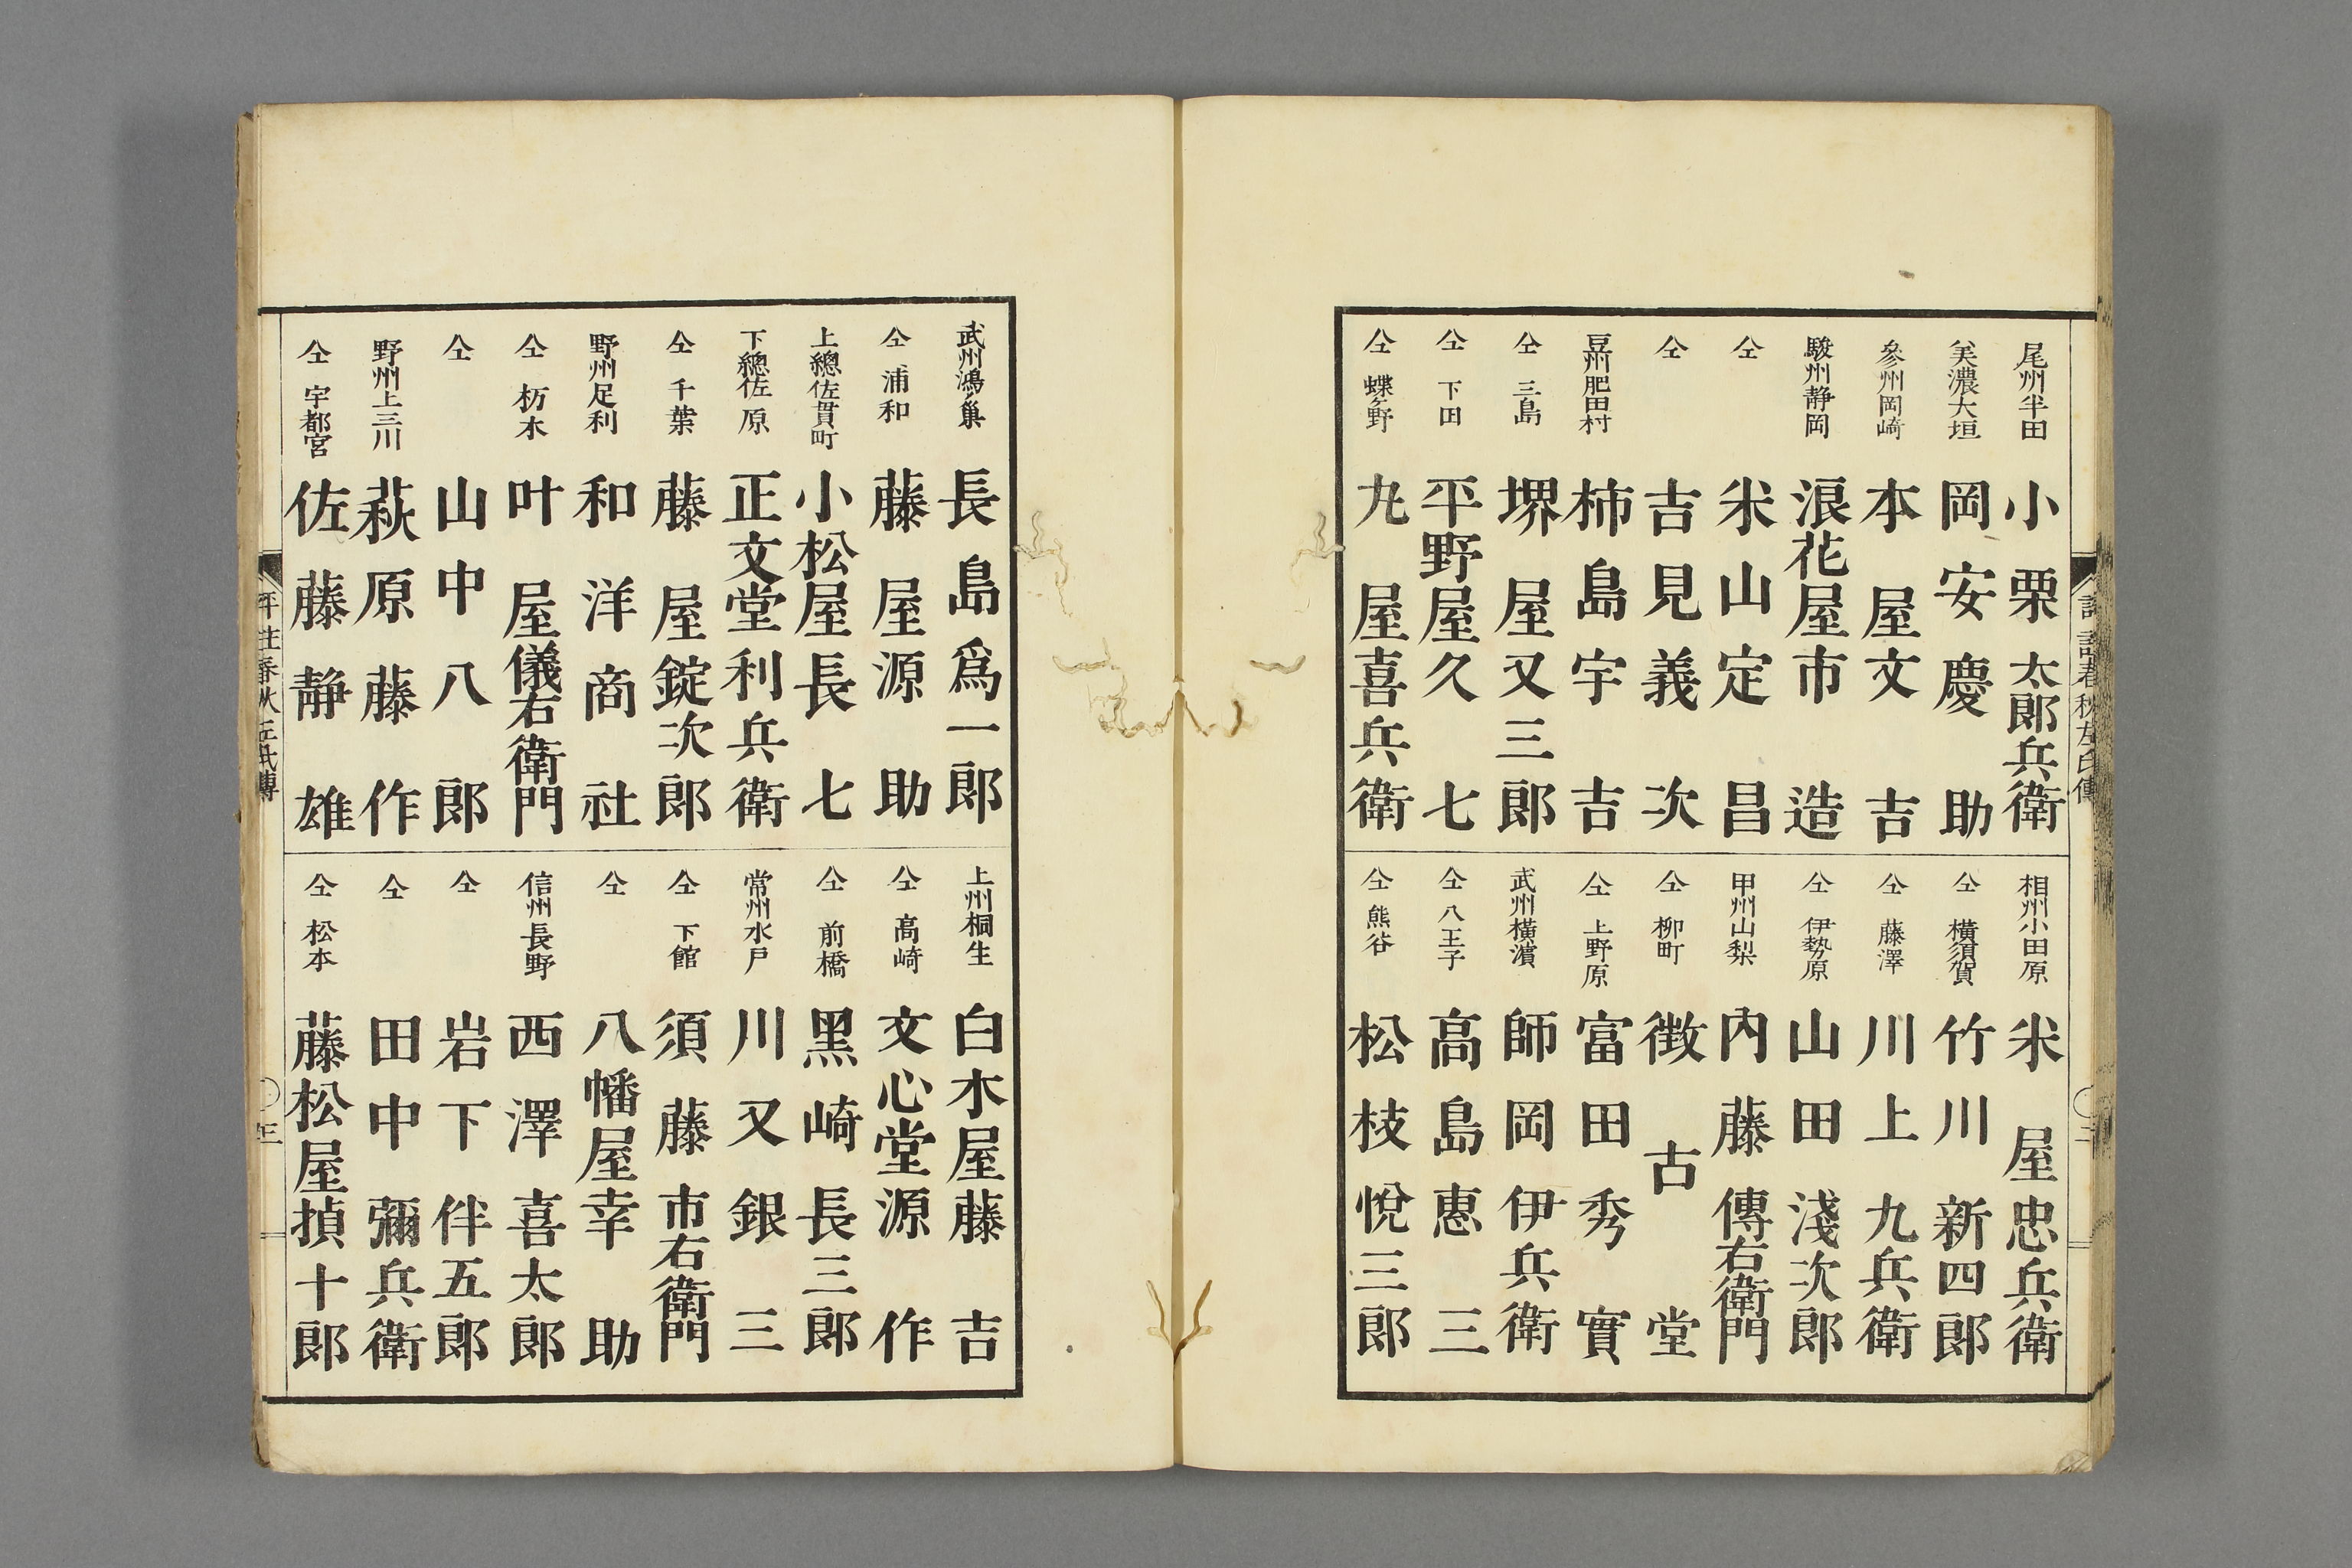 尾州半田 小栗太郎兵衛
美濃大垣 岡安慶助
參州岡崎 本屋文吉
駿州静岡 浪花屋市造
仝 米山定昌
仝 吉見義次
豆州肥田村 柿島宇吉
仝 三島 堺屋又三郎
仝 下田 平野屋久七
仝 蝶ヶ野 九屋喜兵衛
相州小田原 米屋忠兵衛
仝 横須賀 竹川新四郎
仝 藤澤 川上九兵衛
仝 伊勢原 山田淺次郎
甲州山梨 内藤傳右衛門
仝 柳町 徴古堂
仝 上野原 富田秀實
武州横濱 師岡伊兵衛
仝 八王子 高島惠三
仝 熊谷 松枝悅三郎
春秋左氏傳
武州鴻巣 長島爲一郎
仝 浦和 藤屋源助
上總佐貫町 小松屋長七
下總佐原 正文堂利兵衛
仝 千葉 藤屋錠次郎
野州足利 和洋商社
仝 枥木 叶屋儀右衛門
仝 山中八郎
野州上三川 萩原藤作
仝 宇都宮 佐藤静雄
上州桐生 白木屋藤吉
仝 高崎 文心堂源作
仝 前橋 黑崎長三郎
常州水戸 川又銀三
仝 下館 須藤市右衛門
仝 八幡屋幸助
信州長野 西澤喜太郎
仝 岩下伴五郎
仝 田中彌兵衛
仝 松本 藤松屋禎十郎
春秋左氏傳